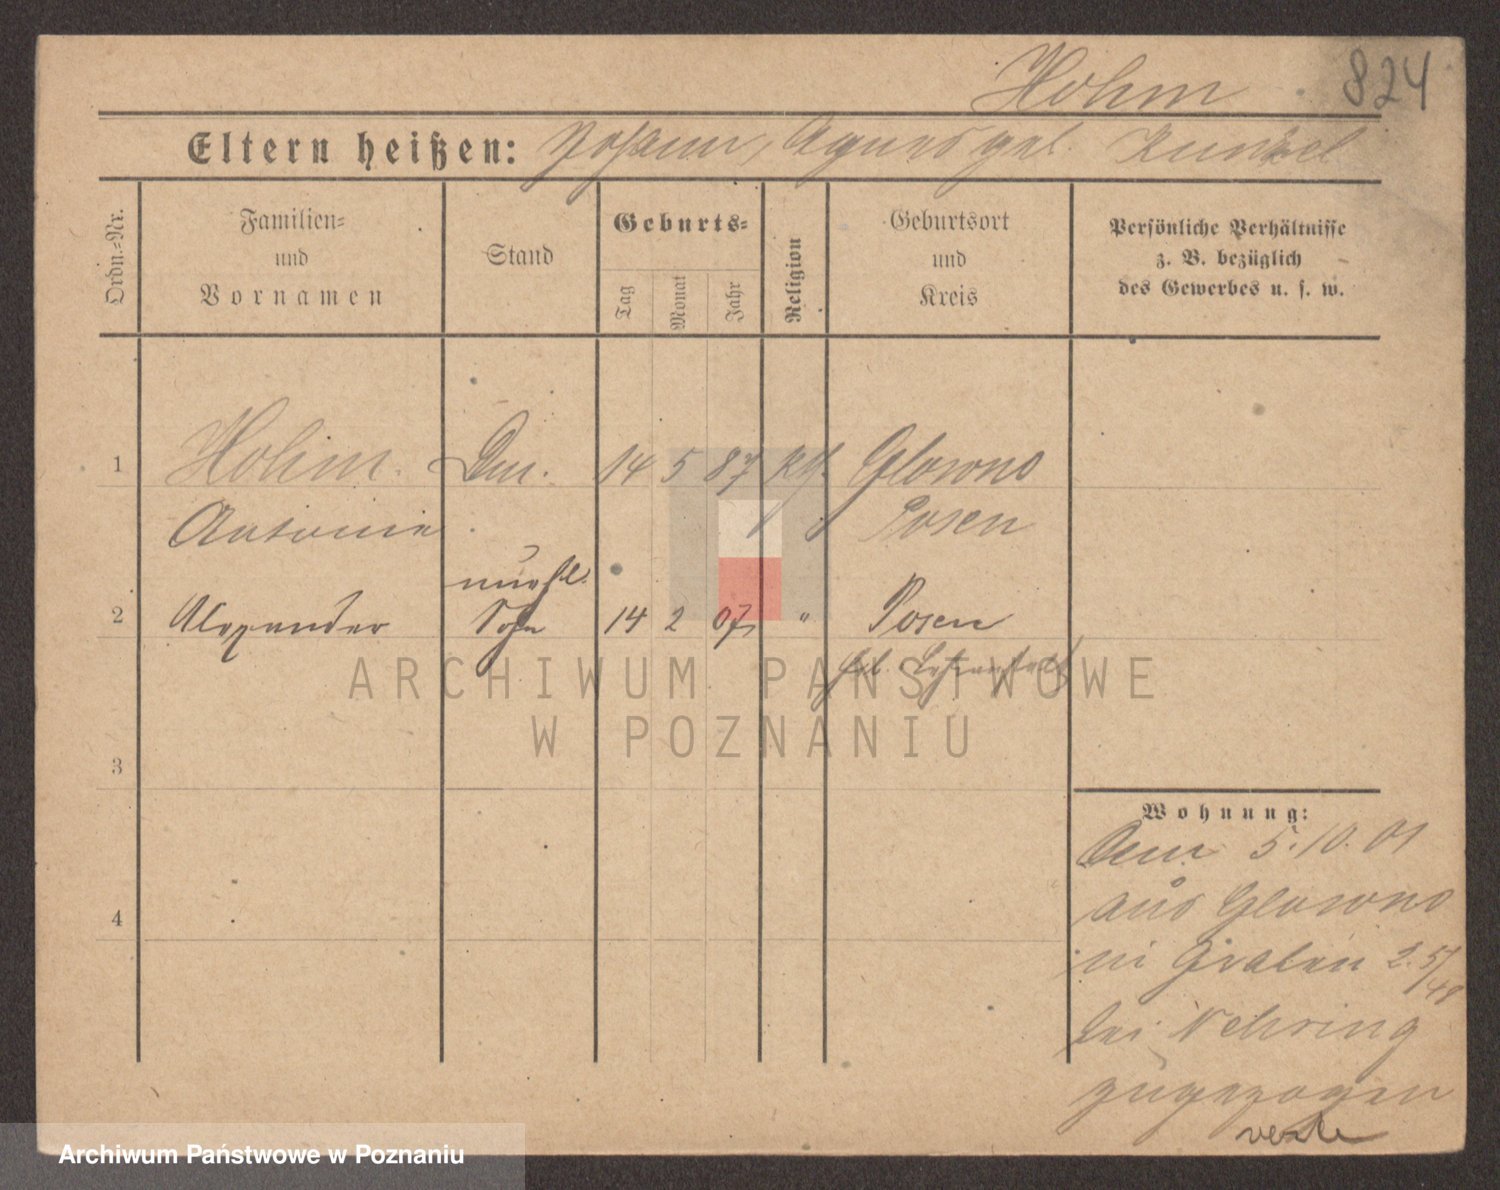 Hohm 824
Eltern heißen: Johann, Agnes geb. Kunkel
Ordn.-Nr.
Familien-
und
Vornamen
Stand
Geburts-
Tag
Monat
Jahr
Religion
Geburtsort
und
Kreis
Persönliche Verhältnisse
z. B. bezüglich
des Gewerbes u. s. w.
1 Hohm. 14 5 87 kth. Glowno
Antonie Posen
unehl.
2 Alexander Sohn 14 2 07 " Posen
3
4
Wohnung:
5.10.01
aus Glowno
in Graben
bei Nehring
zugezogen
ARCHIWUM PAŃSTWOWE
W POZNANIU
Archiwum Państwowe w Poznaniu